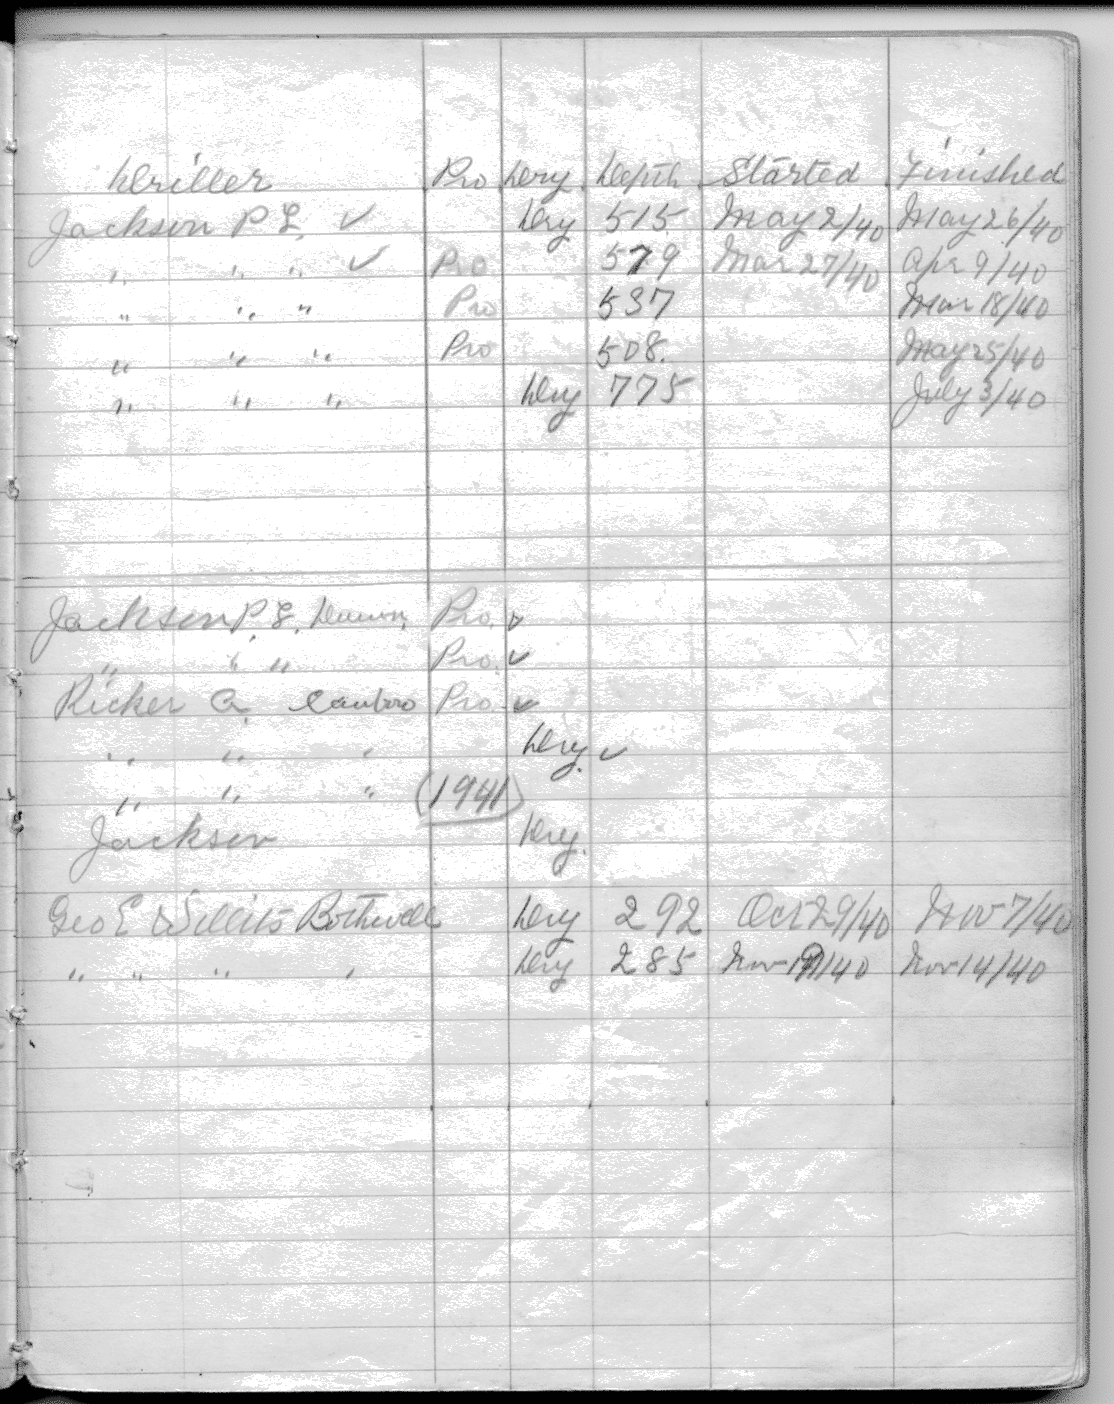 Driller Pro Dry Depth Started Finished
Jackson P E. ✓ Dry 515 May 2/40 May 26/40
" " " ✓ Pro 579 Mar 27/40 Apr 9/40
" " " Pro 537 Mar 18/40
" " " Pro 508. May 25/40
" " " Dry 775 July 3/40
Jackson P. E. Pro. ✓
" " " Pro. ✓
Ricker A. Canboro Pro. ✓
" " " Dry. ✓
" " " (1941)
Jackson Dry.
Geo E Willits Bothwell Dry 292 Oct 29/40 Nov 7/40
" " " " Dry 285 Nov /40 Nov 14/40